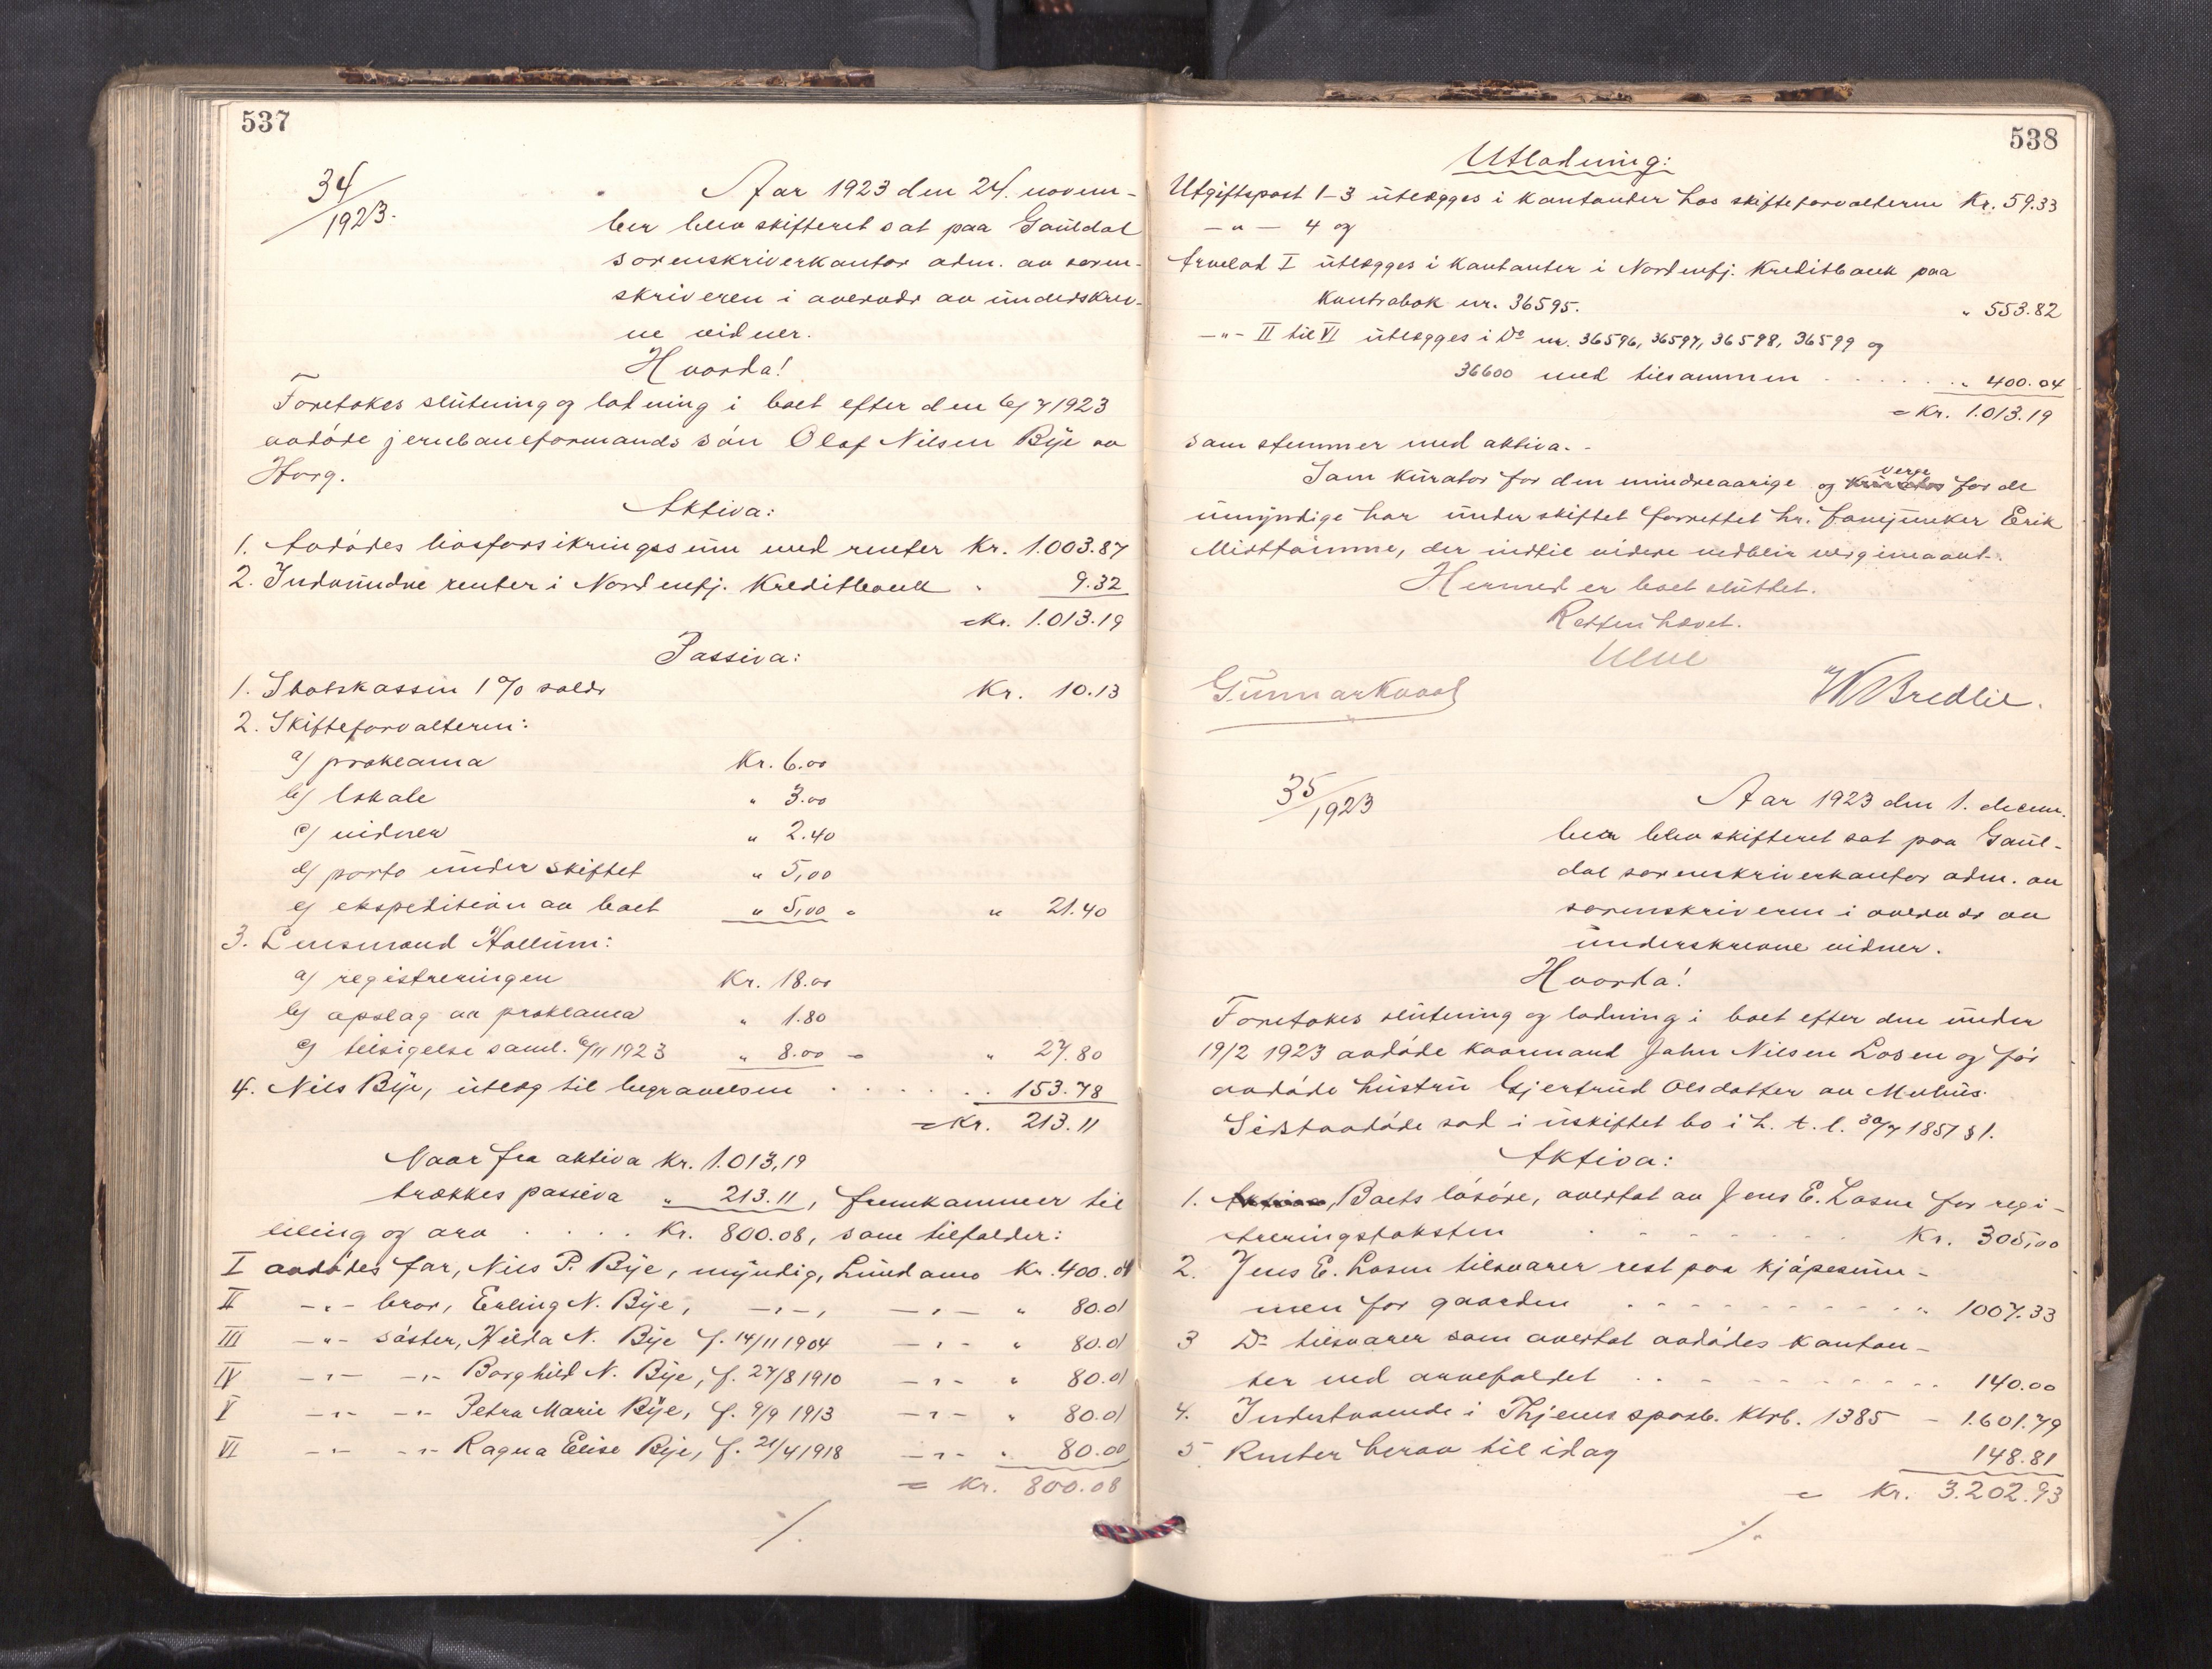 537
34/1923.
Aar 1923 den 24. novem-
ber blev skifteret sat paa Gauldal
sorenskriverkontor adm. av soren-
skriveren i overvær av underskrev-
ne vidner.
Hvorda!
Foretokes slutning og lodning i boet efter den 6/7 1923
avdöde jernbaneformands sön Olaf Nilsen Bye av
Horg.
Aktiva:
1. Avdödes livsforsikringssum med renter Kr. 1.003.87
2. Indvundne renter i Nordenfj. Kreditbank " 9.32
= Kr. 1.013.19
Passiva:
1. Statskassen 1 % saldo Kr. 10.13
2. Skifteforvalteren:
a) proklama Kr. 6.00
b) lokale " 3.00
c) vidner " 2.40
d) porto under skiftet " 5,00
e) ekspedition av boet " 5,00 = " 21.40
3. Lensmand Hollum:
a) registreringen Kr. 18.00
b) opslag av proklama " 1.80
c) tilsigelse saml. 6/11 1923 " 8.00 = " 27.80
4. Nils Bye, utlæg til begravelsen . . . . . . 153.78
= Kr. 213.11
Naar fra aktiva Kr. 1.013,19
trækkes passiva " 213.11, fremkommer til
deling og arv . . . . Kr. 800.08, som tilfalder:
I avdödes far, Nils P. Bye, myndig, Lundamo Kr. 400.04
II -"- bror, Erling N. Bye, -"-, -"- " 80.01
III -"- söster, Hilda N. Bye f. 14/11 1904 -"- " 80.01
IV -"- -"- Borghild N. Bye, f. 27/8 1910 -"- " 80.01
V -"- -"- Petra Marie Bye, f. 9/9 1913 -"- " 80.01
VI -"- -"- Ragna Elise Bye, f. 21/4 1918 -"- " 80.00
= Kr. 800.08
./.
538
Utlodning:
Utgiftspost 1-3 utlægges i kontanter hos skifteforvalteren Kr. 59.33
-"- 4 og
Arvelod I utlægges i kontanter i Nordenfj. Kreditbank paa
kontrabok nr. 36595. " 553.82
-"- II til VI utlægges i Do nr. 36596, 36597, 36598, 36599 og
36600 med tilsammen . . . . . " 400.04
= Kr. 1.013.19
som stemmer med aktiva. -
Som kurator for den mindreaarige og verge for de
umyndige har under skiftet forrettet hr. fanejunker Erik
Midttömme, der indtil videre vedblir
Hermed er boet sluttet.
Retten hævet.
Gunnar Kvaal
W Bredlie.
35/1923
Aar 1923 den 1. decem-
ber blev skifteret sat paa Gaul-
dal sorenskriverkontor adm. av
sorenskriveren i overvær av
underskrevne vidner.
Hvorda!
Foretokes slutning og lodning i boet efter den under
19/2 1923 avdöde kaarmand John Nilsen Losen og för
avdöde hustru Gjertrud Olsdatter av Melhus.
Sidstavdöde sad i uskiftet bo i h. t. l. 30/7 1851 § 1.
Aktiva:
1. Boets lösöre, overtat av Jens E. Losen for regi-
streringstaksten . . . . . . . Kr. 305,00
2. Jens E. Losen tilsvarer rest paa kjöpesum-
men for gaarden . . . . . . . . . " 1007.33
3 Do tilsvarer som overtat avdödes kontan-
ter ved dødsfaldet . . . . . . . . . 140.00
4. Indestaaende i Thjems spareb. ktrb. 1385 - 1.601.79
5 Renter herav til idag 148.81
= Kr. 3.202.93
./.